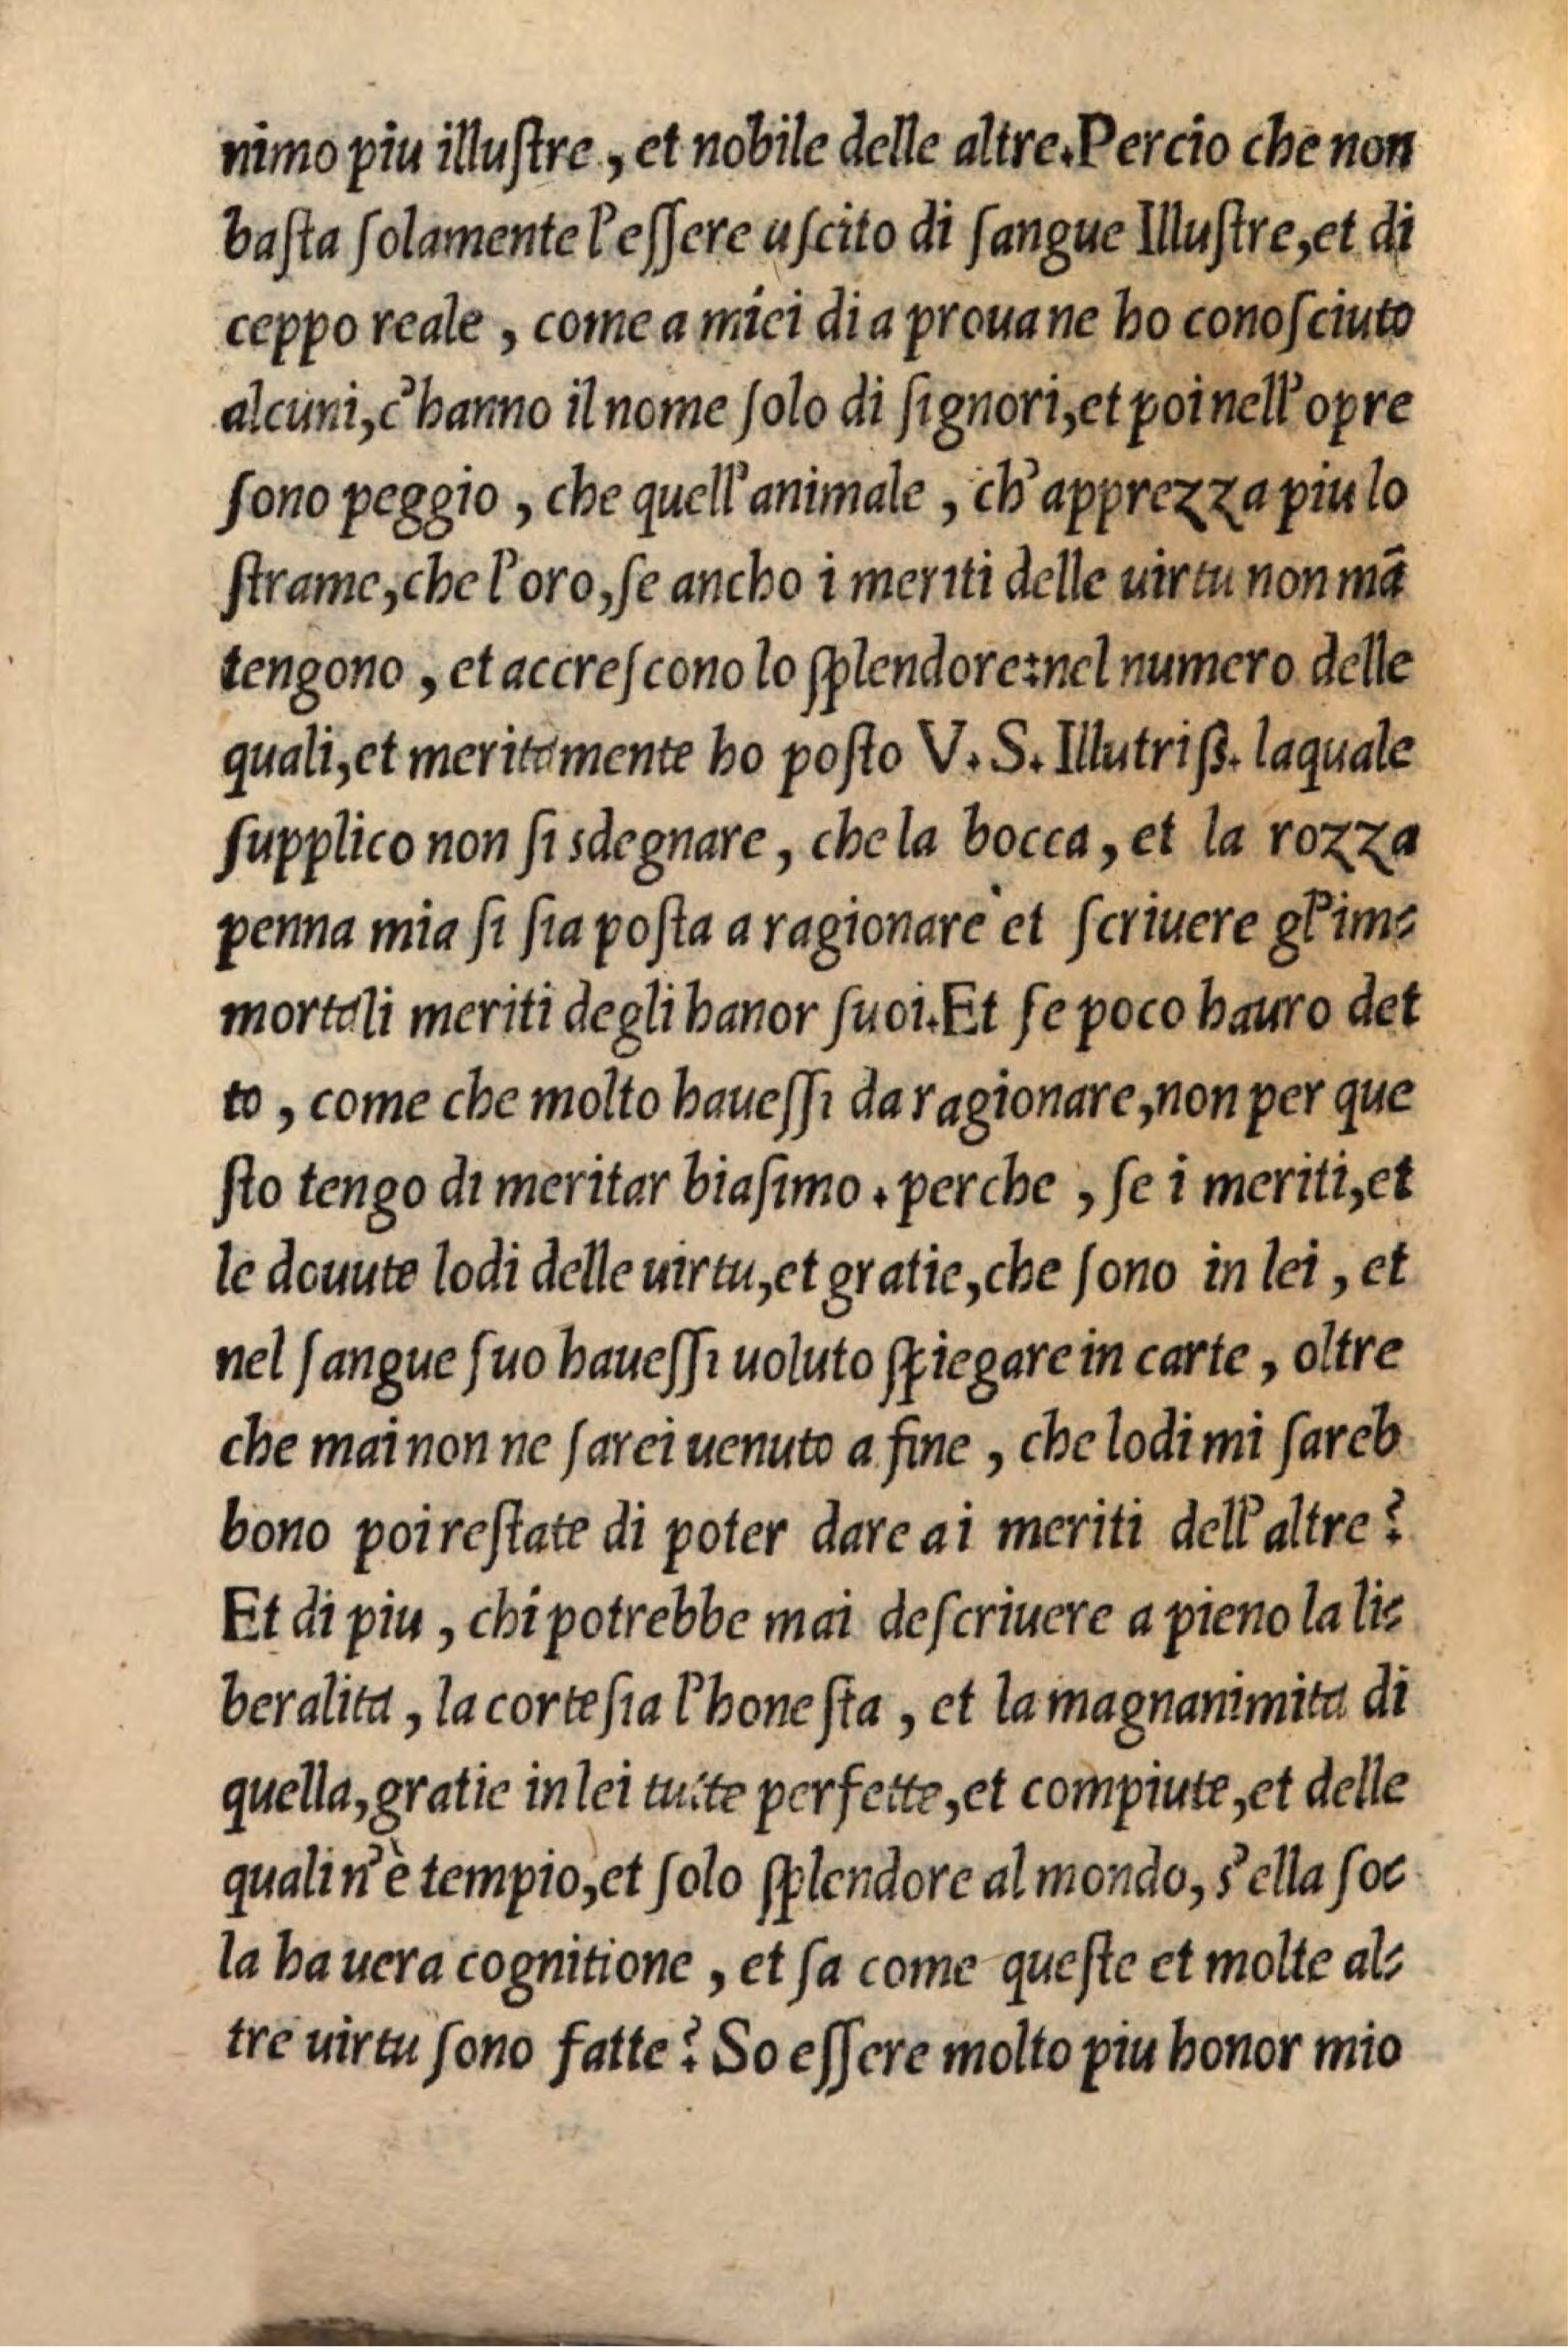 nimo piu illuſtre, et nobile delle altre. Percio che non
baſta ſolamente l'eſſere uſcito di ſangue Illuſtre, et di
ceppo reale, come a miei di a proua ne ho conoſciuto
alcuni, c'hanno il nome ſolo di ſignori, et poi nell'opre
ſono peggio, che quell'animale, ch'apprezza piu lo
ſtrame, che l'oro, ſe ancho i meriti delle uirtu non mā
tengono, et accreſcono lo ſplendore: nel numero delle
quali, et meritamente ho poſto V. S. Illutriß. laquale
ſupplico non ſi sdegnare, che la bocca, et la rozza
penna mia ſi ſia poſta a ragionare et ſcriuere gl'im-
mortali meriti degli hanor ſuoi. Et ſe poco hauro det
to, come che molto haueſſi da ragionare, non per que
ſto tengo di meritar biaſimo. perche, ſe i meriti, et
le douute lodi delle uirtu, et gratie, che ſono in lei, et
nel ſangue ſuo haueſſi uoluto ſpiegare in carte, oltre
che mai non ne ſarei uenuto a fine, che lodi mi ſareb
bono poi reſtate di poter dare ai meriti dell'altre?
Et di piu, chi potrebbe mai deſcriuere a pieno la li-
beralita, la corteſia l'honeſta, et la magnanimita di
quella, gratie in lei tutte perfette, et compiute, et delle
quali n'è tempio, et ſolo ſplendore al mondo, s'ella ſo-
la ha uera cognitione, et ſa come queſte et molte al-
tre uirtu ſono fatte? So eſſere molto piu honor mio